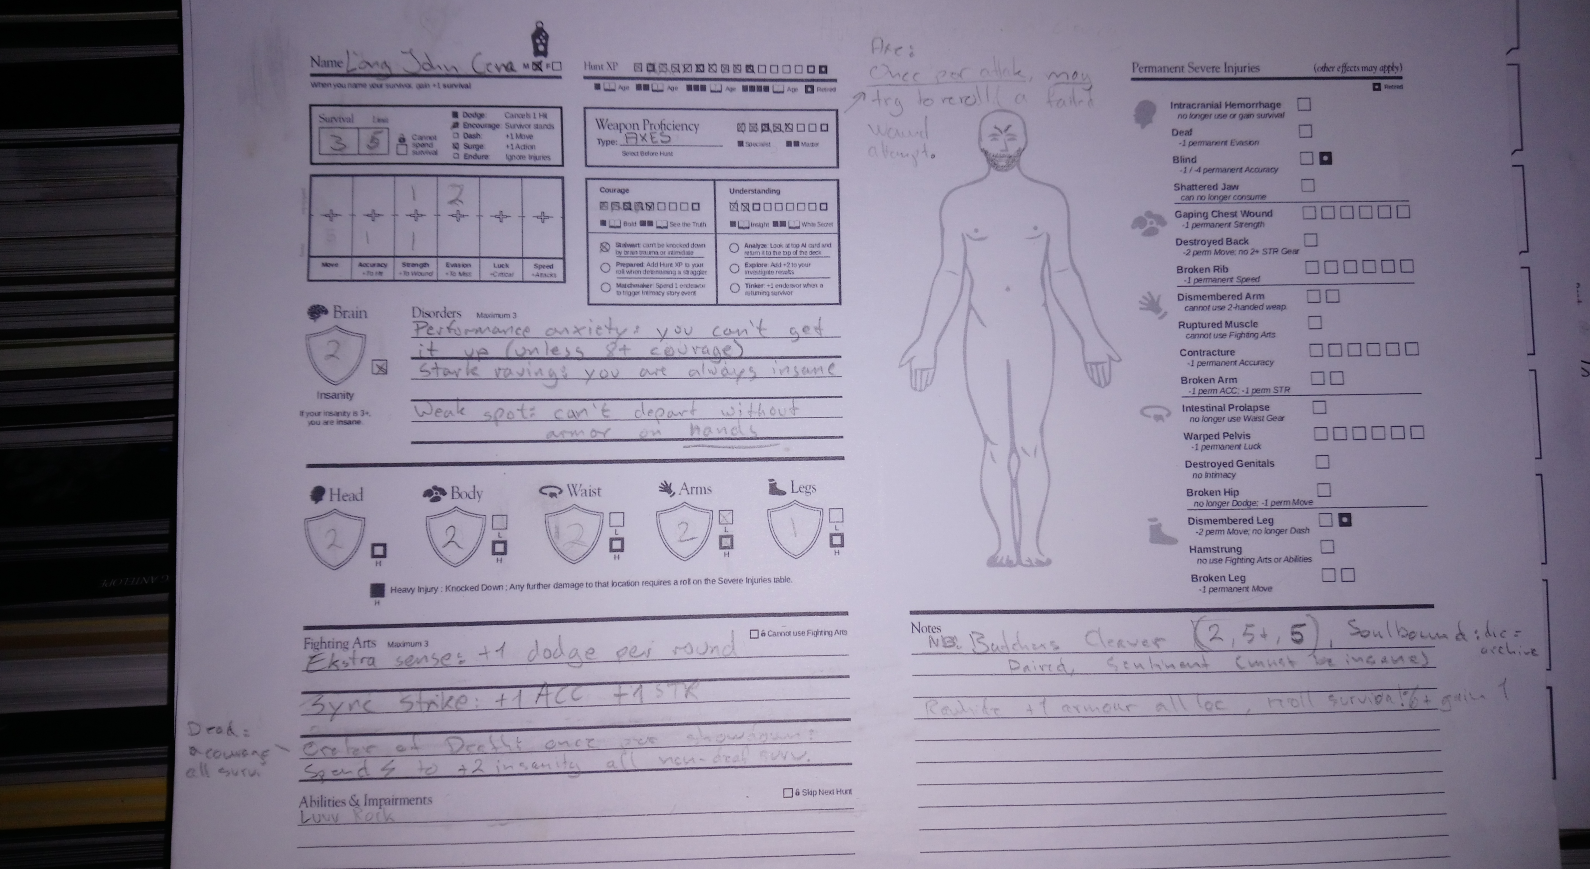 Name Long John Cena M F
When you name your survivor, gain +1 survival
Survival Limit
3 5
Cannot spend survival
Dodge: Cancels 1 Hit
Encourage: Survivor stands
Dash: +1 Move
Surge: +1 Action
Endure: Ignore Injuries
1 2
1 1
Move Accuracy Strength Evasion Luck Speed
Hunt XP
Age Age Age Age Retired
Weapon Proficiency
Type: AXES
Select Before Hunt Specialist Master
Courage Understanding
Bold See the Truth Insight White Secret
Stalwart: can't be knocked down
by brain trauma or intimidate
Prepared: Add Hunt XP to your
roll when determining a straggler
Matchmaker: Spend 1 endeavor
to trigger Intimacy story event
Analyze: Look at top AI card and
return it to the top of the deck
Explore: Add +2 to your
investigate results
Tinker: +1 endeavor when a
returning survivor
Axe:
Once per attack, may
try to reroll a failed
wound
attempt.
Brain
2
Insanity
If your insanity is 3+,
you are insane.
Disorders Maximum 3
Performance anxiety: you can't get
it up (unless 8+ courage)
Stark raving: you are always insane
Weak spot: can't depart without
armor on hands
Head Body Waist Arms Legs
2 2 12 2 1
H L H L H L H L H
Heavy Injury : Knocked Down ; Any further damage to that location requires a roll on the Severe Injuries table.
H
Fighting Arts Maximum 3 Cannot use Fighting Arts
Ekstra sense: +1 dodge per round
Sync Strike: +1 ACC +1 STR
Orator of Death: once per showdown:
Spend 5 to +2 insanity all non-deaf surv.
Dead:
all surv.
Abilities & Impairments Skip Next Hunt
Luvv Rock
Permanent Severe Injuries (other effects may apply)
Retired
Intracranial Hemorrhage
no longer use or gain survival
Deaf
-1 permanent Evasion
Blind
-1 / -4 permanent Accuracy
Shattered Jaw
can no longer consume
Gaping Chest Wound
-1 permanent Strength
Destroyed Back
-2 perm Move; no 2+ STR Gear
Broken Rib
-1 permanent Speed
Dismembered Arm
cannot use 2-handed weap.
Ruptured Muscle
cannot use Fighting Arts
Contracture
-1 permanent Accuracy
Broken Arm
-1 perm ACC; -1 perm STR
Intestinal Prolapse
no longer use Waist Gear
Warped Pelvis
-1 permanent Luck
Destroyed Genitals
no Intimacy
Broken Hip
no longer Dodge; -1 perm Move
Dismembered Leg
-2 perm Move; no longer Dash
Hamstrung
no use Fighting Arts or Abilities
Broken Leg
-1 permanent Move
Notes
NB: Butchers Cleaver (2, 5+, 5), Soulbound: die =
archive
Paired, Sentinent (must be insane)
Rawhide +1 armour all loc, roll survival: 6+ gain 1